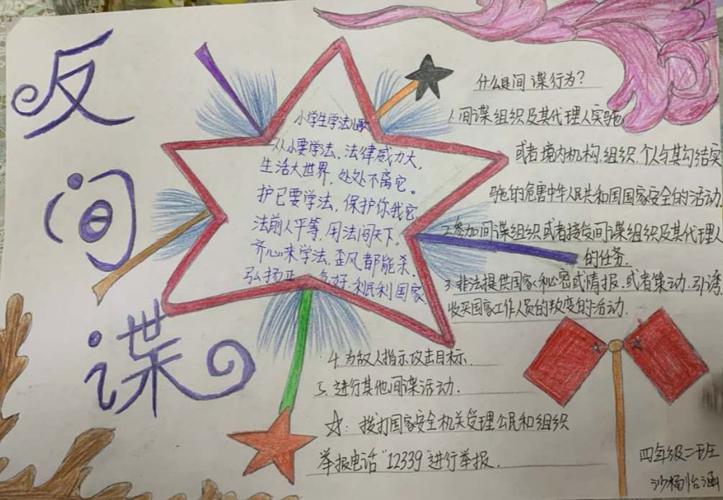 反间谍
小学生学法儿歌
从小要学法,法律威力大,
生活大世界,处处不离它。
护己要学法,保护你我它
法前人平等,用法闯天下,
齐心来学法,歪风都能杀。
弘扬正 多好,利民利国家
什么是间谍行为?
1.间谍组织及其代理人实施
或者境内机构,组织,个人与其勾结实
施的危害中华人民共和国国家安全的活动
2.参加间谍组织或者接受间谍组织及其代理人
的任务.
3.非法提供国家秘密或情报,或者策动,引诱,
收买国家工作人员的叛变的活动.
4.为敌人指示攻击目标.
5.进行其他间谍活动.
☆:拨打国家安全机关受理公民和组织
举报电话"12339"进行举报.
四年级二班
沙杨怡涵